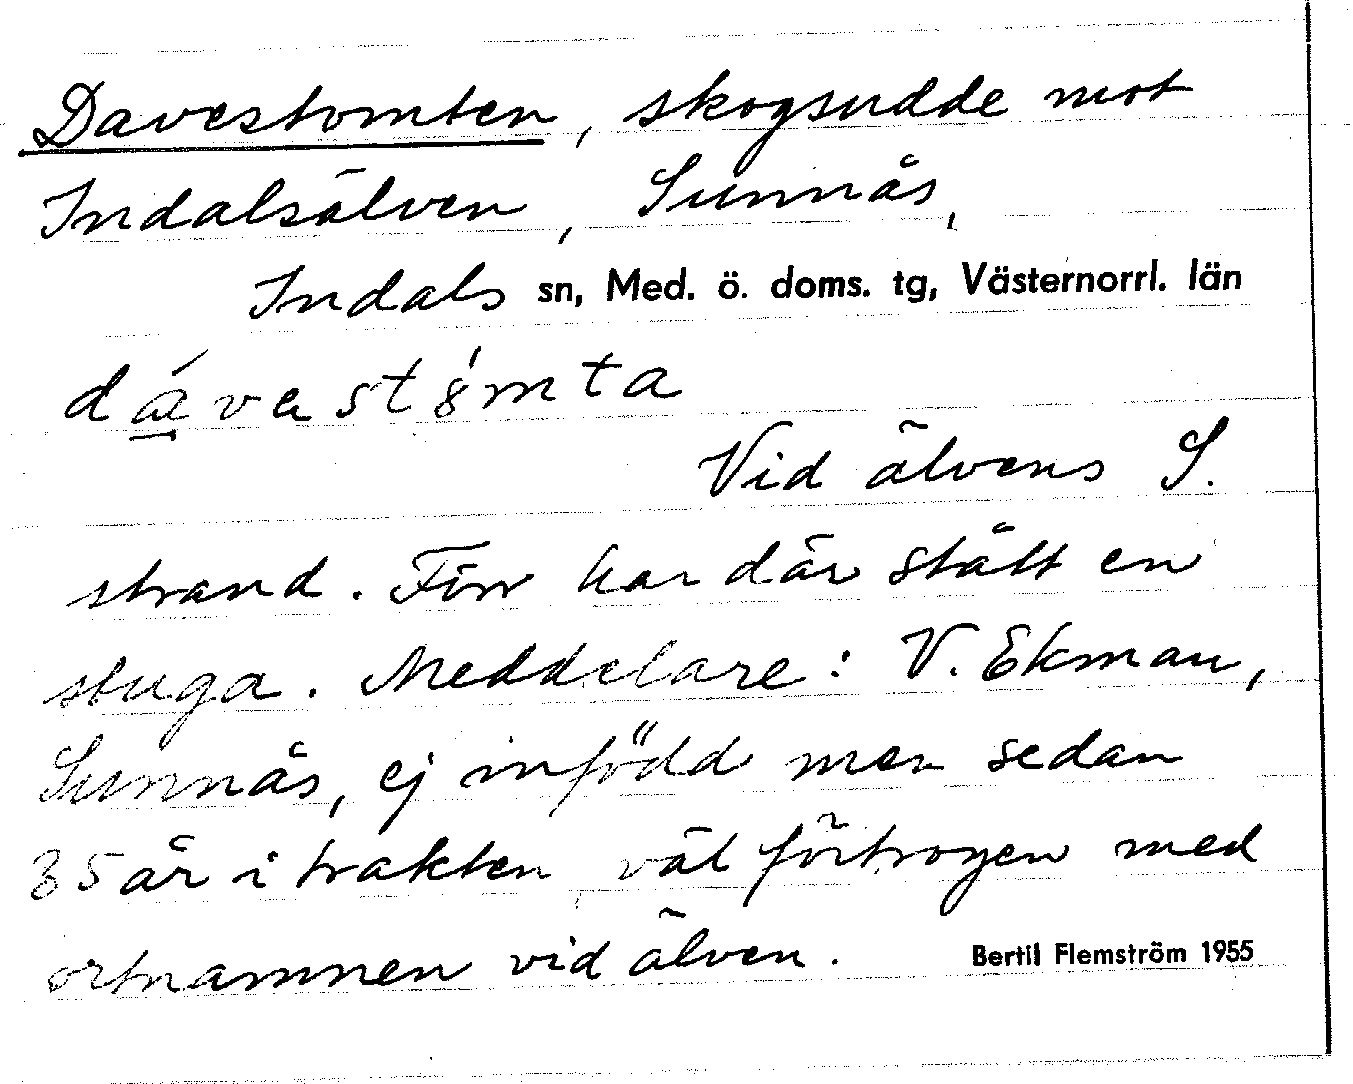 Davestomten, skogsudde mot
Indalsälven, Sunnås,
Indals sn, Med. ö. doms. tg, Västernorrl. län
dávastȣ́mta
Vid älvens S.
strand. Förr har där stått en
stuga. Meddelare: V. Ekman,
Sunnås, ej infödd men sedan
35 år i trakten väl förtrogen med
ortnamnen vid älven. Bertil Flemström 1955